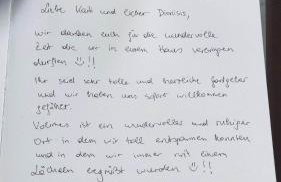 Liebe Kati und lieber Dionisis,
wir danken euch für die wundervolle
Zeit die wir in eurem Haus verbringen
durften ☺!!
Ihr seid sehr tolle und herzliche Gastgeber
und wir haben uns sofort willkommen
gefühlt.
Volimes ist ein wundervoller und ruhiger
Ort in dem wir toll entspannen konnten
und in dem wir immer mit einem
Lächeln begrüßt wurden ☺!!